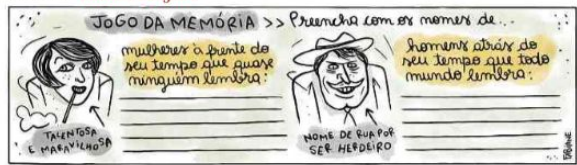 JOGO DA MEMÓRIA >> Preencha com os nomes de...
mulheres à frente do
seu tempo que quase
ninguém lembra:
TALENTOSA
E MARAVILHOSA
homens atrás do
seu tempo que todo
mundo lembra:
NOME DE RUA POR
SER HERDEIRO
FABIANE